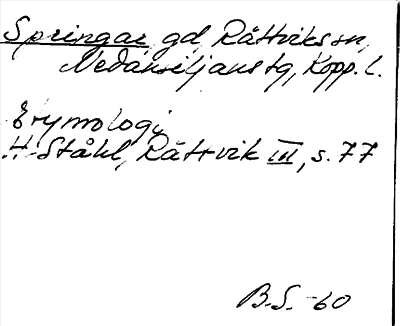 Springar, gd, Rättviks sn,
Nedansiljans tg, Kopp. l.
Etymologi,
H Ståhl, Rättvik III, s. 77
B.S. -60